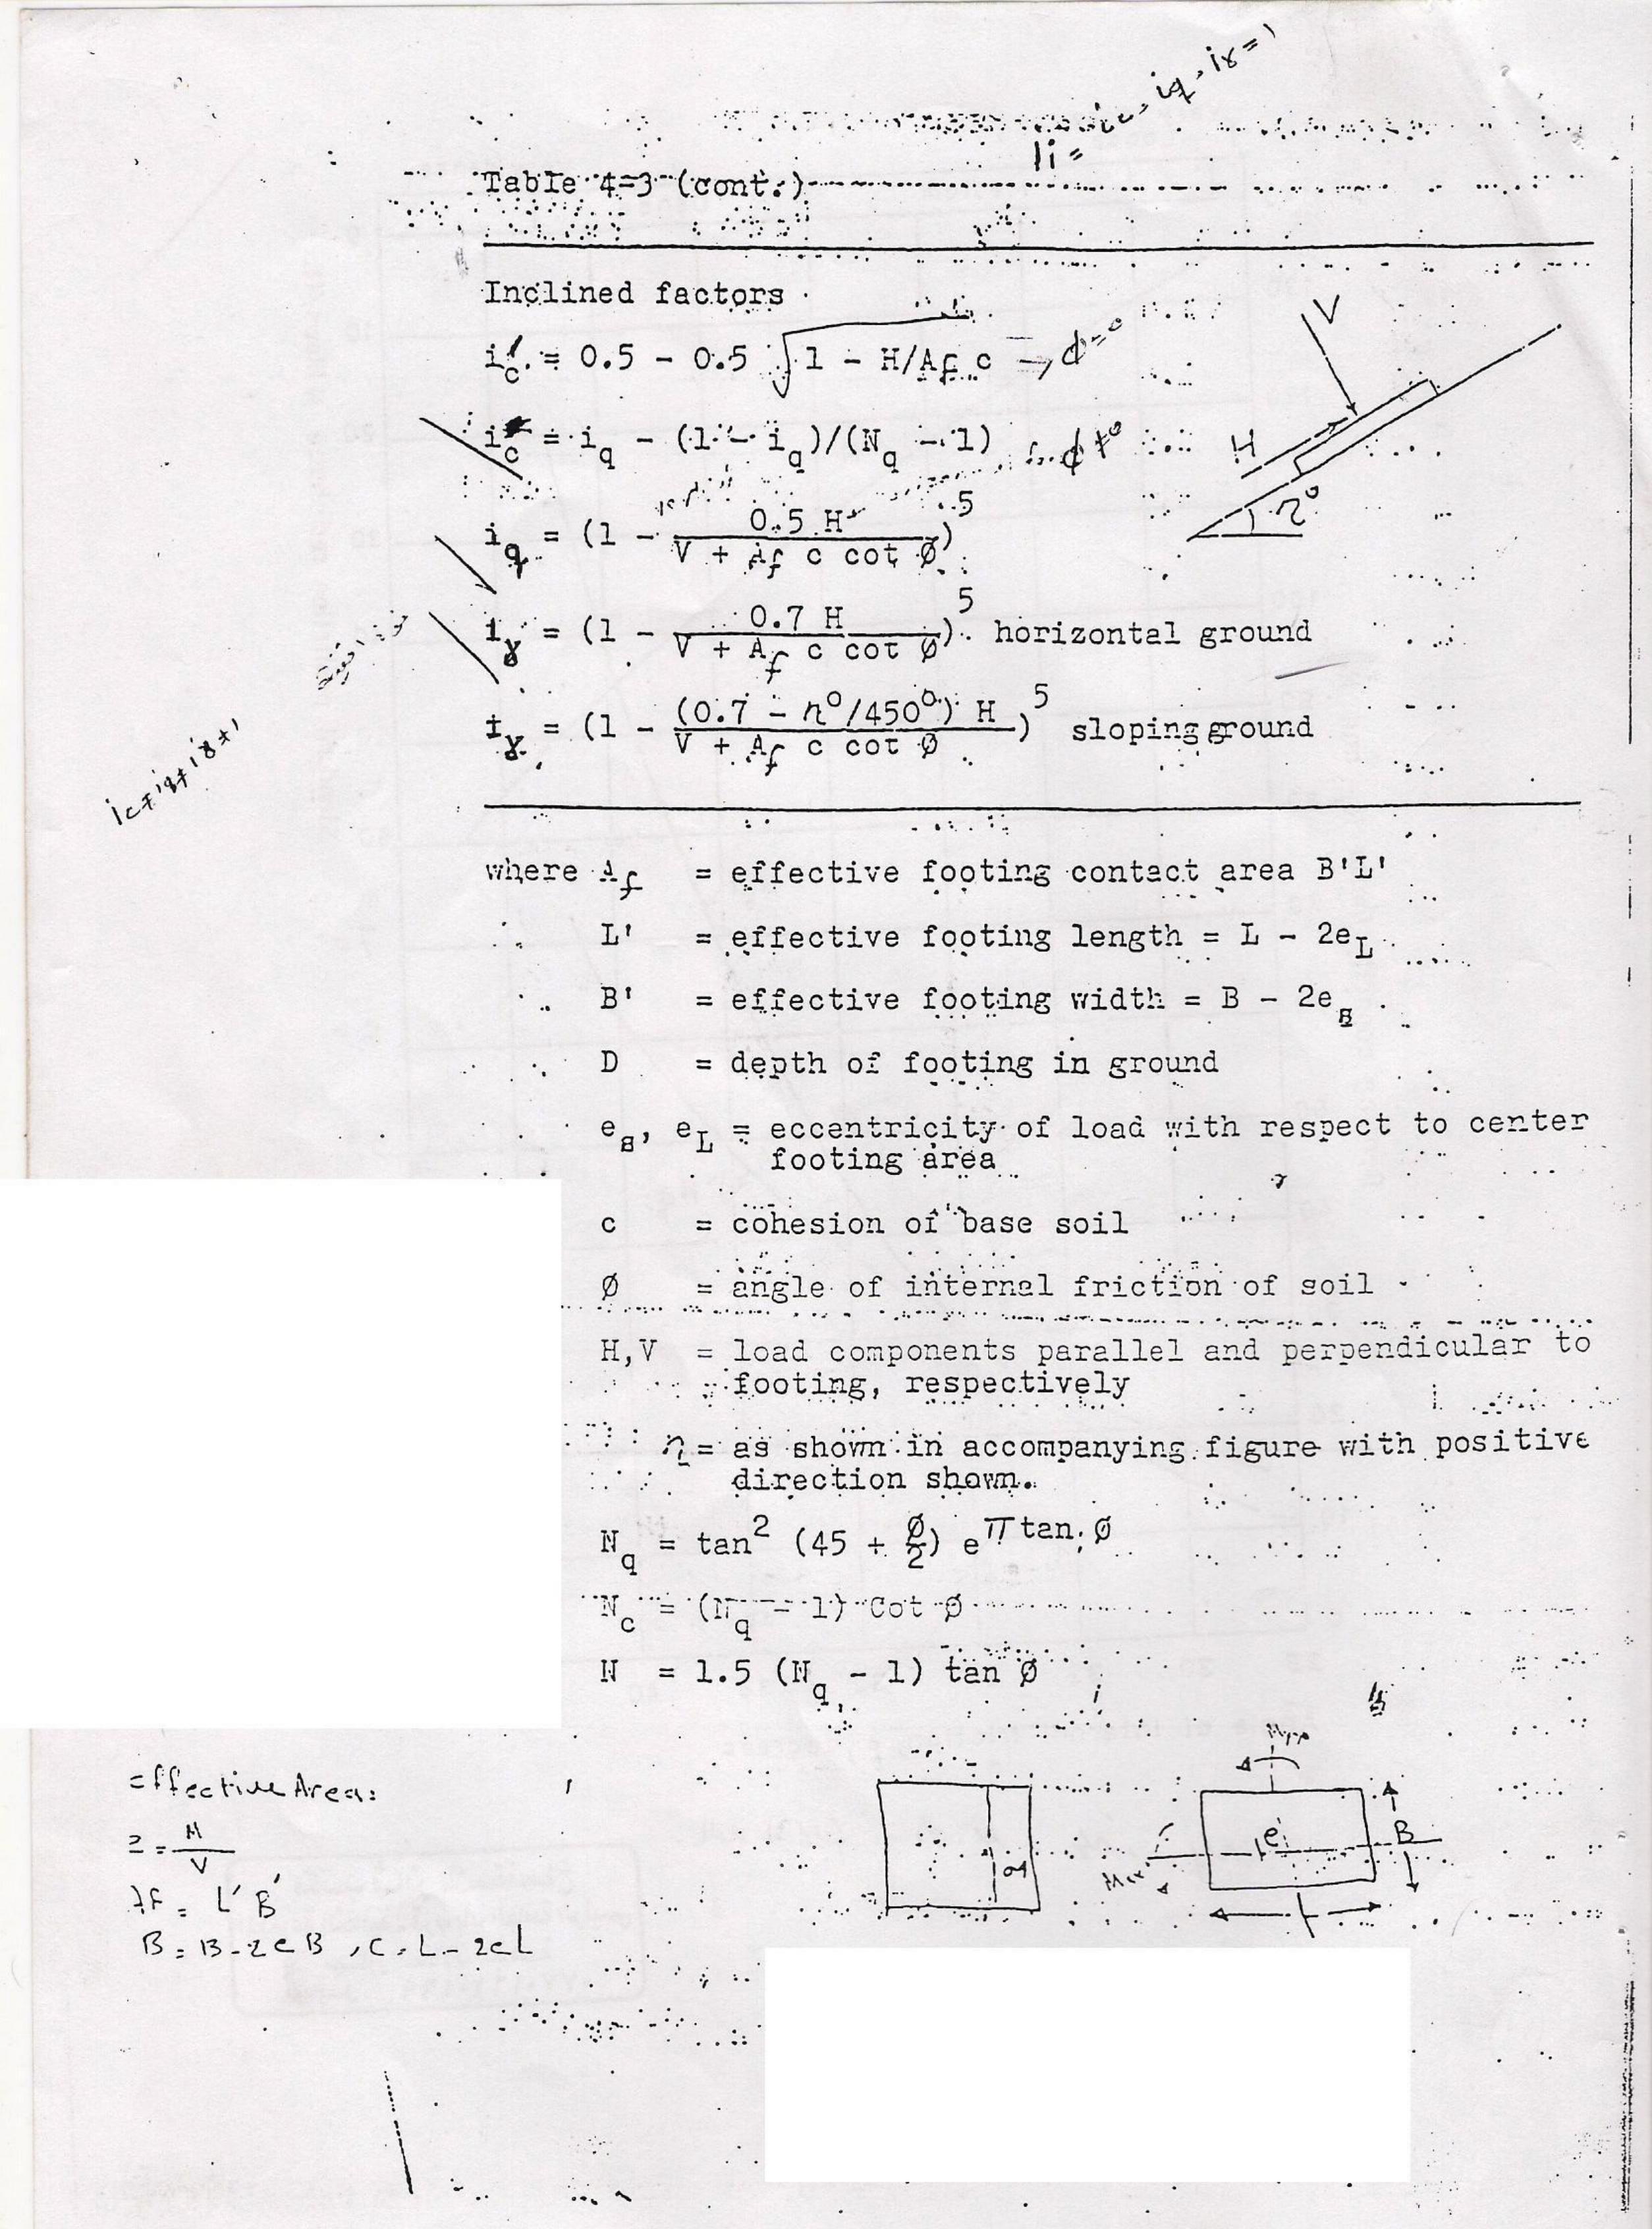 ic - iq - iγ = 1
Ii =
Table 4-3 (cont.)
Inclined factors
i'c = 0.5 - 0.5 √1 - H/Af c → ϕ=0
V
ic = iq - (1 - iq)/(Nq - 1) ϕ≠0
H
η°
iq = (1 - 0.5 H / V + Af c cot Ø)^5
iγ = (1 - 0.7 H / V + Af c cot Ø)^5 horizontal ground
iγ = (1 - (0.7 - η°/450°) H / V + Af c cot Ø)^5 sloping ground
ic≠iq≠iγ≠1
where Af = effective footing contact area B'L'
L' = effective footing length = L - 2eL
B' = effective footing width = B - 2eB
D = depth of footing in ground
eB, eL = eccentricity of load with respect to center
footing area
c = cohesion of base soil
Ø = angle of internal friction of soil
H,V = load components parallel and perpendicular to
footing, respectively
η = as shown in accompanying figure with positive
direction shown.
Nq = tan² (45 + Ø/2) e^π tan Ø
Nc = (Nq - 1) Cot Ø
N = 1.5 (Nq - 1) tan Ø
Effective Area:
e = M/V
Af = L' B'
B = B - 2eB , L - 2eL
e
B